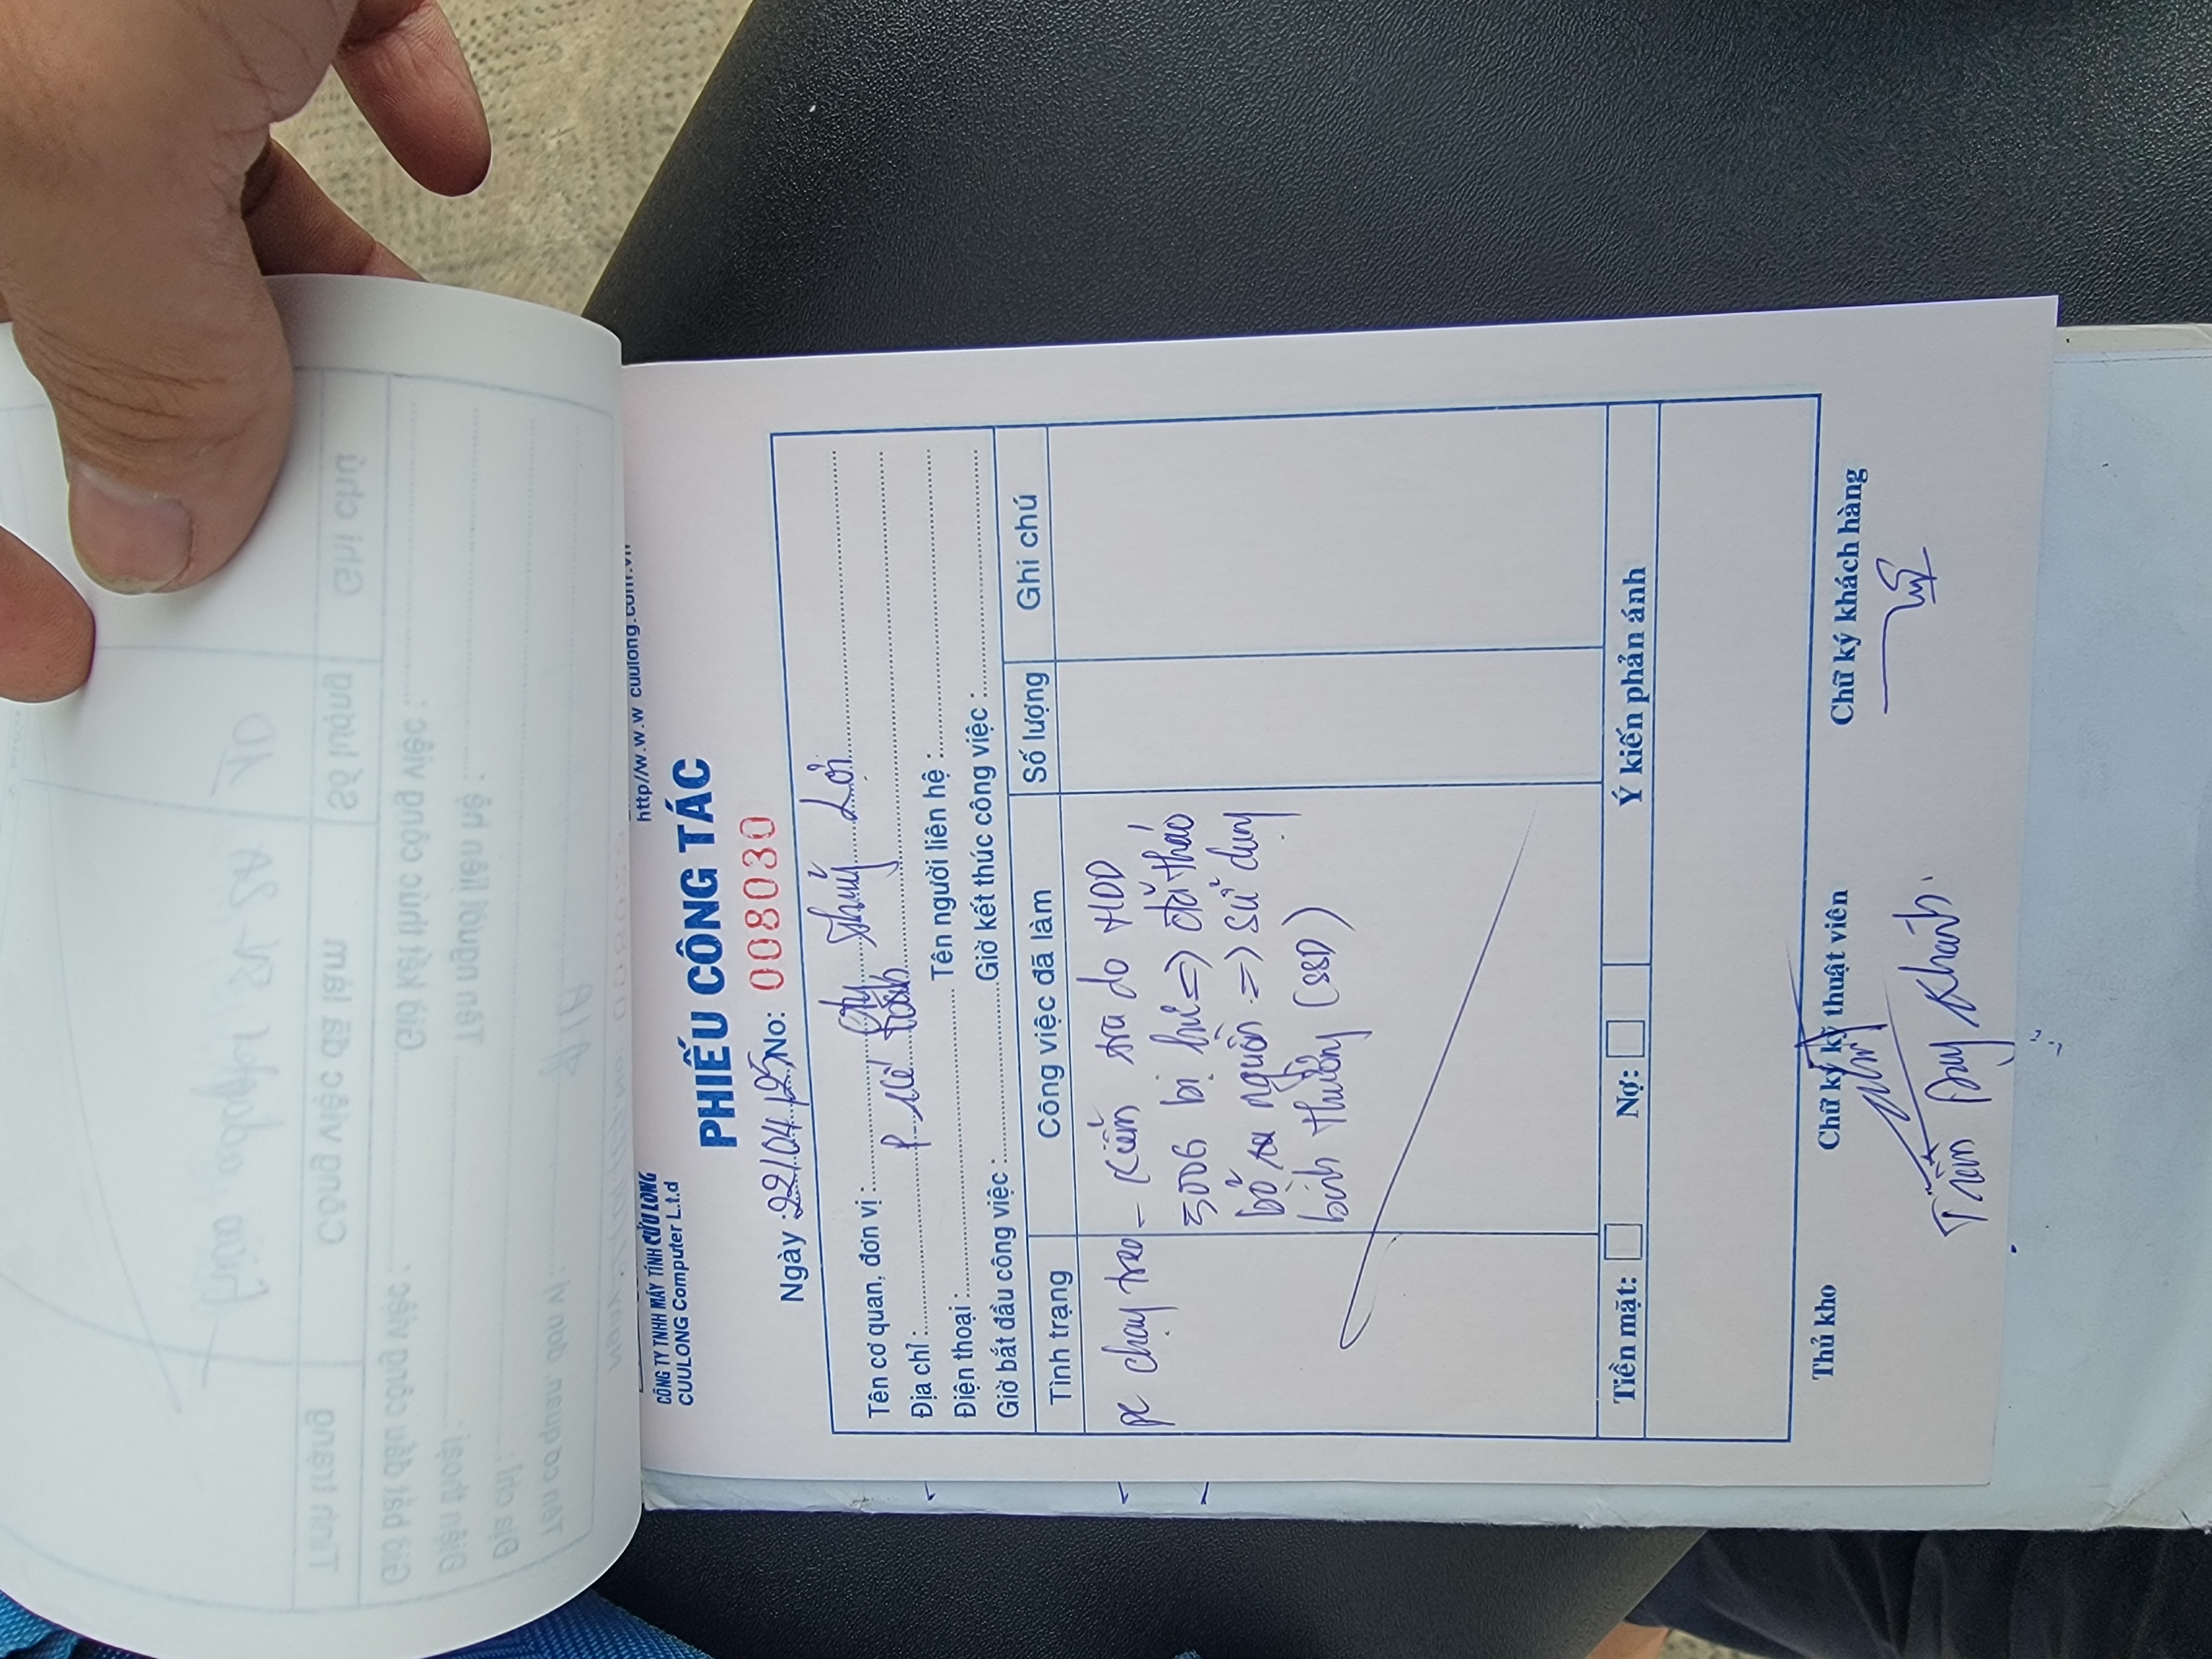 http//w.w.w cuulong.com.vn
CÔNG TY TNHH MÁY TÍNH CỬU LONG
CUULONG Computer L.t.d
PHIẾU CÔNG TÁC
Ngày : 22/04/25 No: 008030
Tên cơ quan, đơn vị : Cty Thuỷ Lợi
Địa chỉ : P. Kế toán
Điện thoại : Tên người liên hệ :
Giờ bắt đầu công việc : Giờ kết thúc công việc :
Tình trạng Công việc đã làm Số lượng Ghi chú
pc chạy treo - Kiểm tra do HDD
500G bị hư => đã tháo
bỏ ra nguồn => sử dụng
bình thường (SSD)
Tiền mặt: Nợ: Ý kiến phản ánh
Thủ kho Chữ ký kỹ thuật viên Chữ ký khách hàng
Trần Duy Khanh